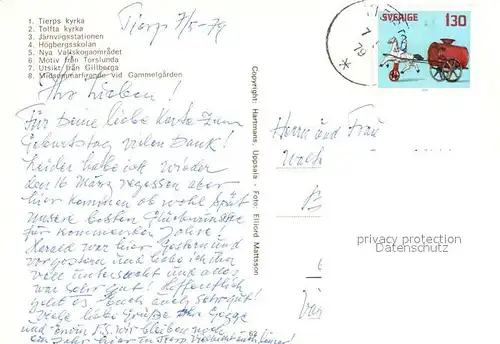 1. Tierps kyrka
2. Tolfta kyrka
3. Järnvägsstationen
4. Högbergsskolan
5. Nya Vallskogaområdet
6. Motiv från Torslunda
7. Utsikt från Gillberga
8. Midsommarfirande vid Gammelgården
Tierp 7/5-79
Ihr Lieben!
Für Deine liebe Karte zum
Geburtstag vielen Dank!
Leider habe ich wieder
den 16 März vergessen aber
hier kommen ob wohl spät
unsere besten Glückwünsche
für kommenden Jahre!
Harald war hier gestern und
vorgestern und habe ich ihn
voll untersucht und alles
war sehr gut! Hoffentlich
geht es Euch auch sehr gut!
Viele liebe Grüße Ihr Gogge
und P.S. wir bleiben noch
ein Jahr hier in Tierp
Copyright: Hartmans, Uppsala - Foto: Elliord Mattsson
SVERIGE 130
79
Herrn und Frau
privacy protection
Datenschutz